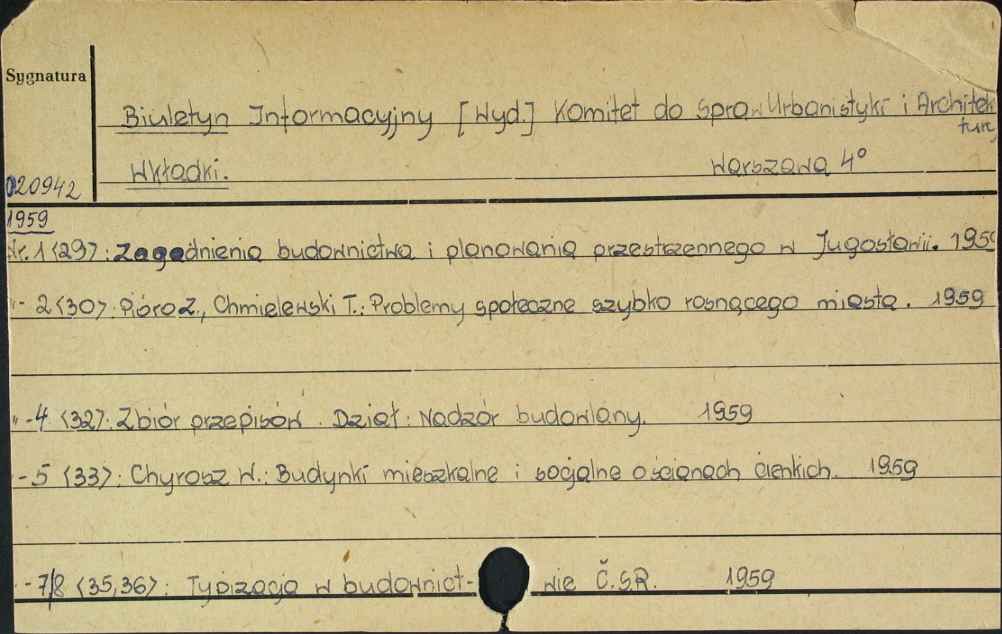 Sygnatura
Biuletyn Informacyjny [Wyd.] Komitet do spraw Urbanistyki i Architek
tury
Wkładki. Warszawa 4°
020942
1959
Nr. 1 (29): Zagadnienia budownictwa i planowania przestrzennego w Jugosławii. 1959
"- 2 (30): Pióro Z., Chmielewski T.: Problemy społeczne szybko rosnącego miasta. 1959
"- 4 (32): Zbiór przepisów. Dział: Nadzór budowlany. 1959
- 5 (33): Chyrosz W.: Budynki mieszkalne i socjalne o ścianach cienkich. 1959
- 7/8 (35,36): Typizacja w budownict- wie Č.S.R. 1959